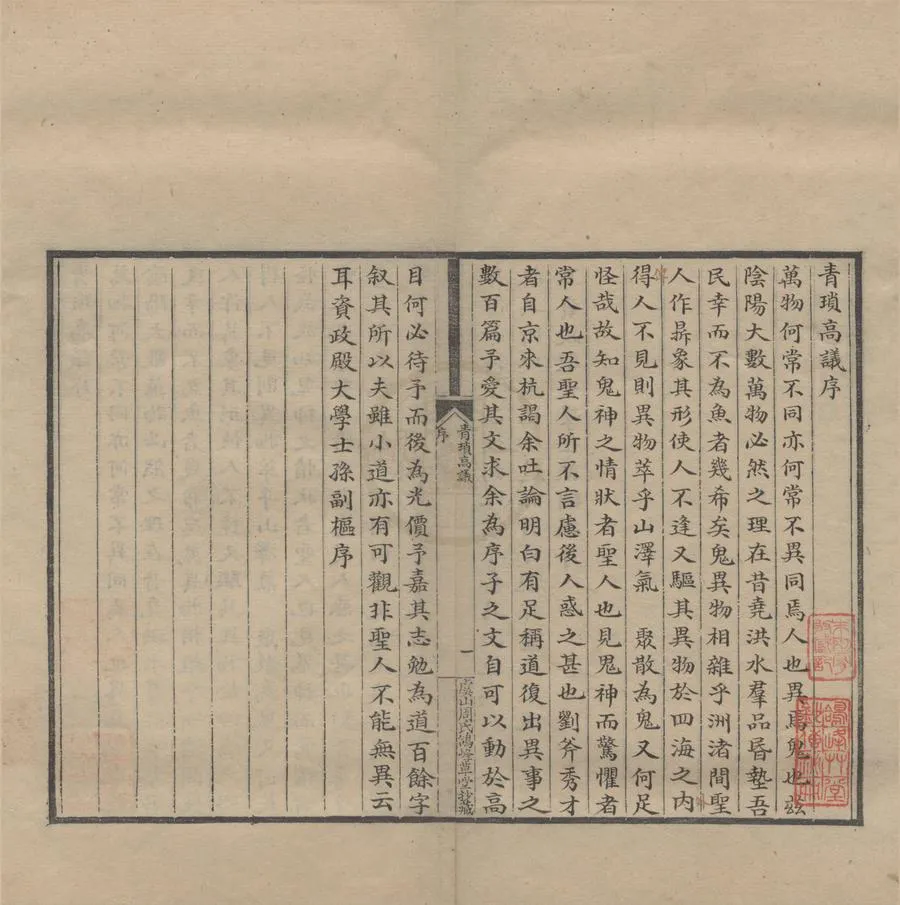 青瑣高議序
萬物何常不同亦何常不異同焉人也異焉鬼也玆
陰陽大數萬物必然之理在昔堯洪水羣品昏墊吾
民幸而不為魚者幾希矣鬼異物相雜乎洲渚間聖
人作鼎象其形使人不逢又驅其異物於四海之内
得人不見則異物萃乎山澤氣 聚散為鬼又何足
怪哉故知鬼神之情狀者聖人也見鬼神而驚懼者
常人也吾聖人所不言慮後人惑之甚也劉斧秀才
者自京來杭謁余吐論明白有足稱道復出異事之
數百篇予愛其文求余為序子之文自可以動於高
青瑣高議
序
一
虞山周氏鴿峰草堂鈔藏
目何必待予而後為光價予嘉其志勉為道百餘字
叙其所以夫雖小道亦有可觀非聖人不能無異云
耳資政殿大學士孫副樞序